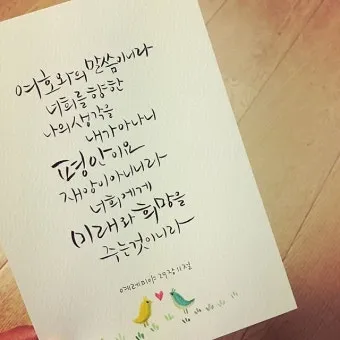 여호와의 말씀이니라
너희를 향한
나의 생각을
내가 아나니
평안이요
재앙이 아니니라
너희에게
미래와 희망을
주는 것이니라
예레미야 29장 11절